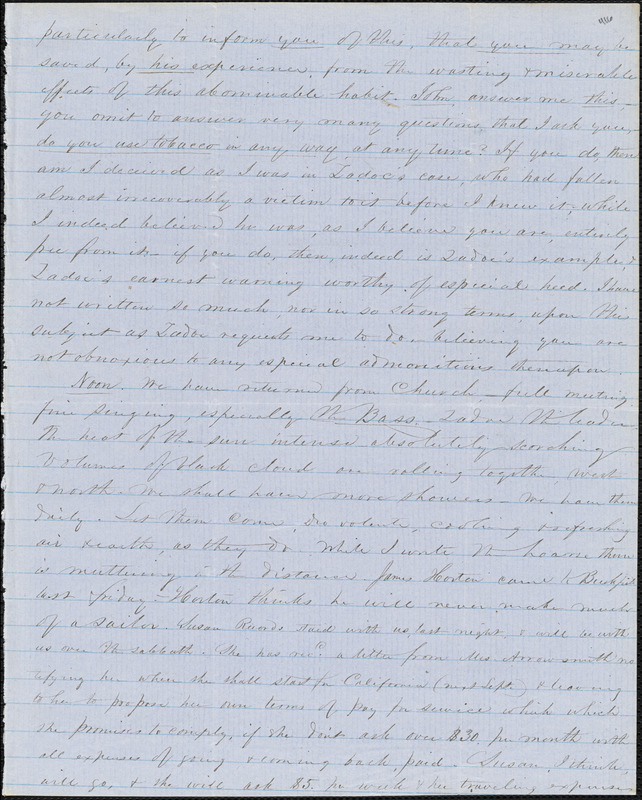 particularly to inform you of this, that you may be
saved, by his experience, from the wasting & miserable
effects of this abominable habit. John, answer me this –
you omit to answer very many questions, that I ask you,
do you use tobacco in any way, at any time? If you do, then
am I deceived as I was in Zadoc's case, who had fallen
almost irrecoverably a victim to it before I knew it; while
I indeed believed he was, as I believe you are, entirely
free from it – if you do, then, indeed is Zadoc's example, &
Zadoc's earnest warning worthy of especial heed. I have
not written so much, nor in so strong terms, upon this
subject as Zadoc requests me to do, believing you are
not obnoxious to any especial admonitions thereupon.
Noon. We have returned from Church – full meeting,
fine singing, especially the Bass – Zadoc the leader
the heat of the sun intense absolutely scorching
Volumes of black cloud are rolling together, west
& north. We shall have more showers – We have them
daily. Let them come, Deo volente, cooling & refreshing
air & earth, as they do. While I write the hoarse thunder
is muttering in the distance. James Horton came to
last friday – Horton thinks he will never make much
of a sailor. Susan staid with us last night, & will be with
us over the sabbath. She has recd. a letter from Mrs. Arrowsmith no
tifying her when she shall start for California (next Septr.) & leaving
to her to propose her own terms of pay for service which which
she promises to comply, if she dont ask over $30. per month with
all expenses of going & coming back paid. Susan, I think,
will go, & she will ask $5. per week & her traveling expenses